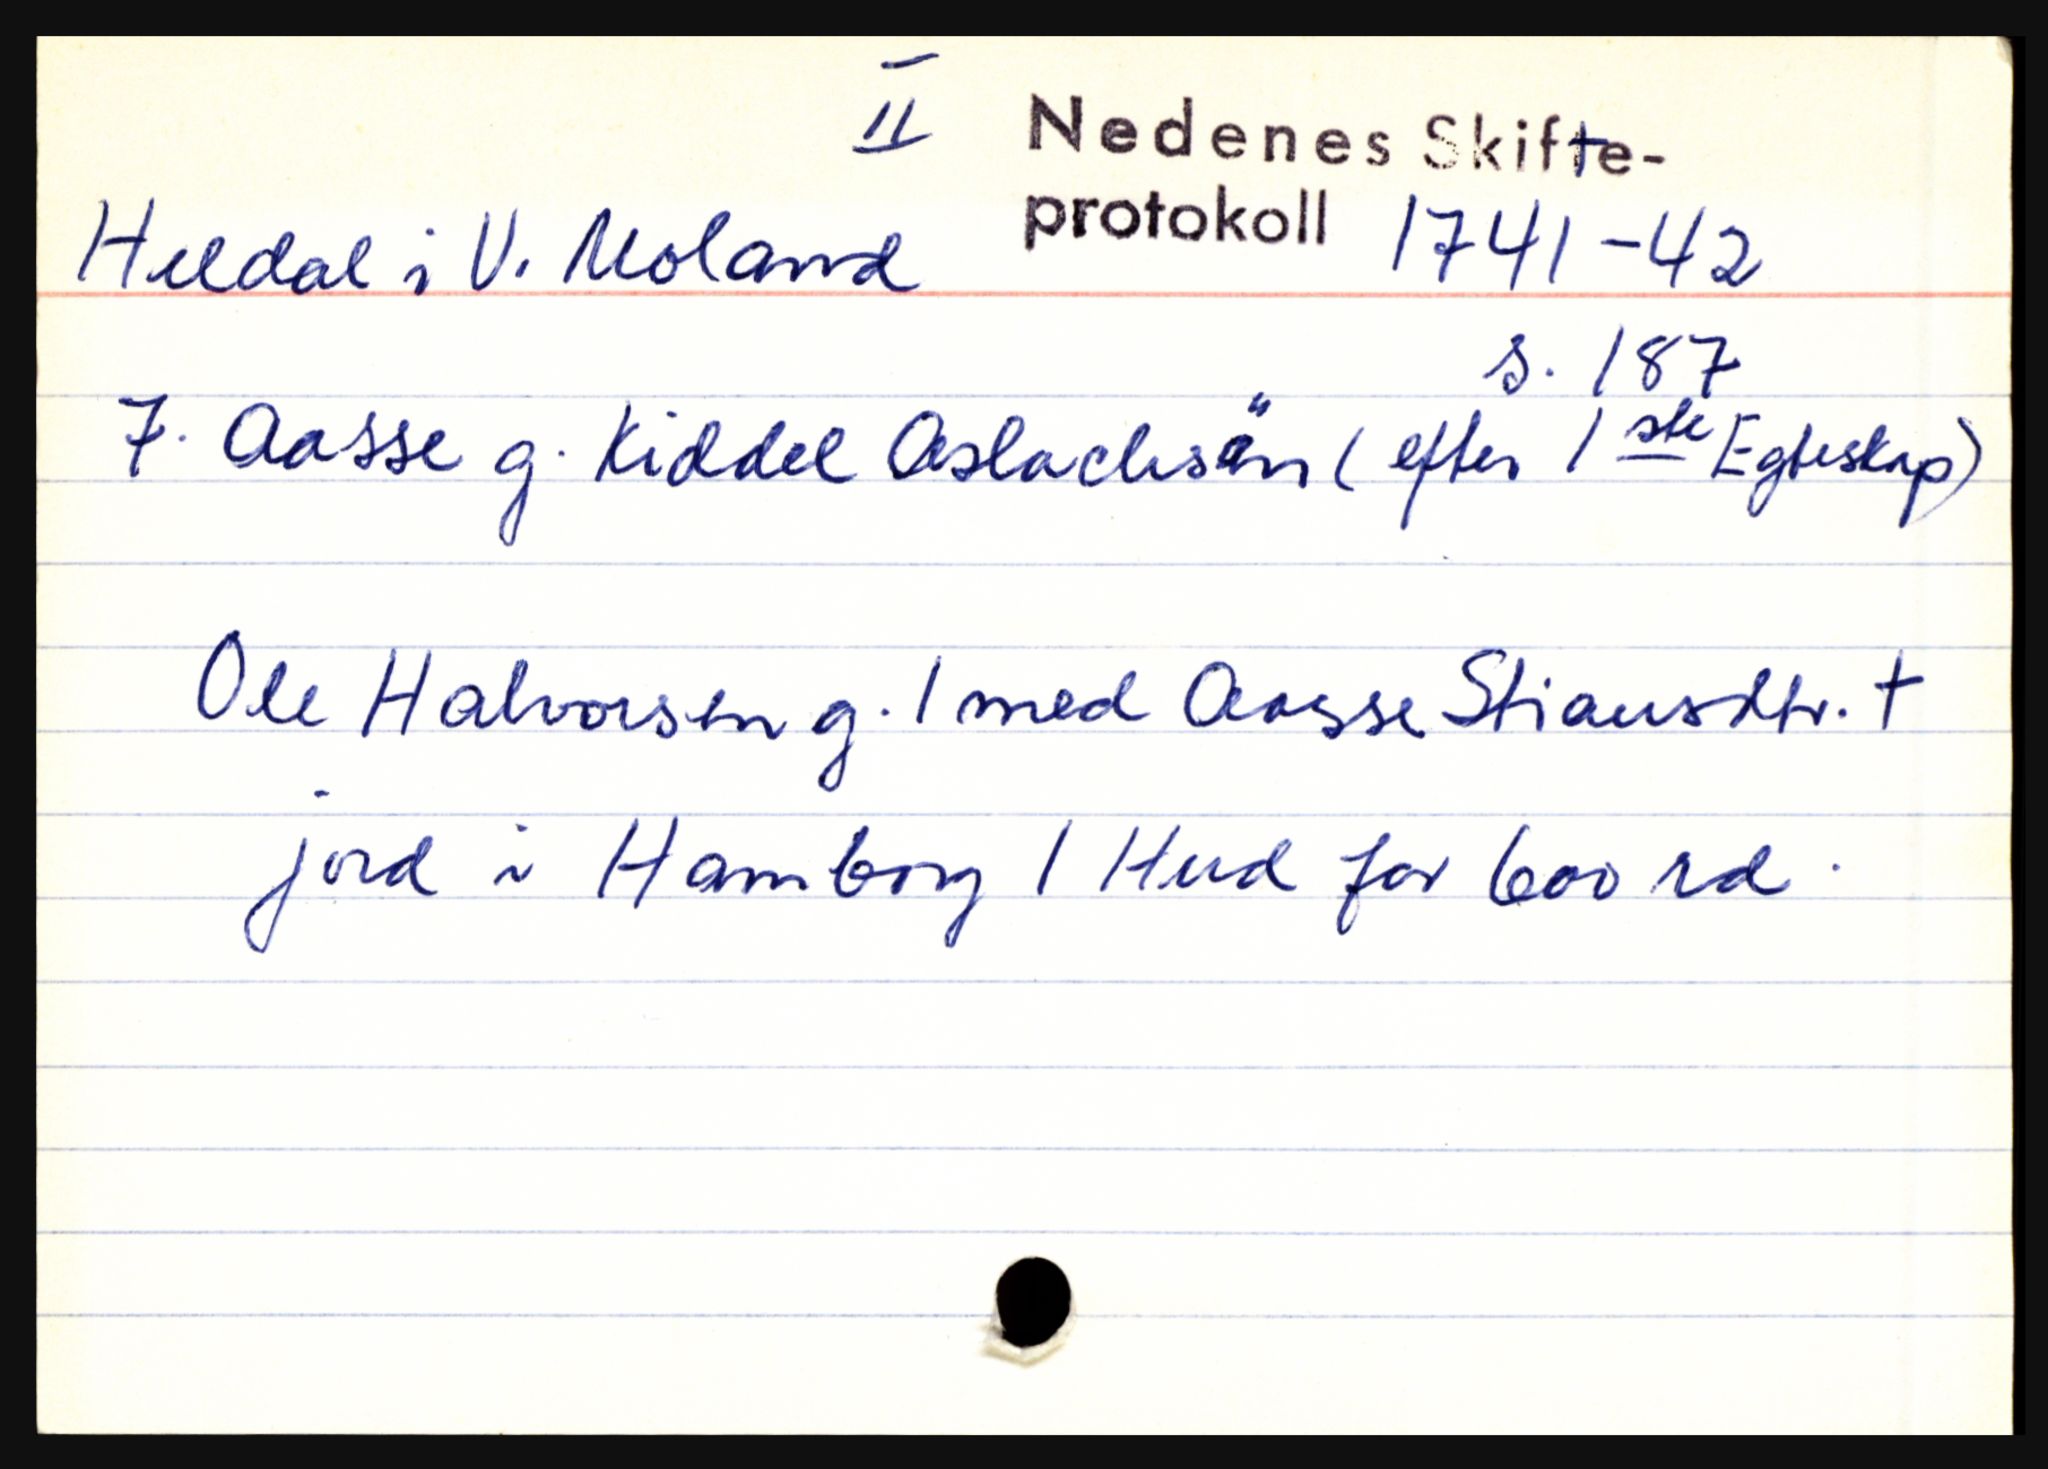 II Nedenes Skifte-
protokoll 1741-42
Heldal i V. Moland
s. 187
7. Aasse g. Kiddel Aslachsön (efter 1ste Egteskap)
Ole Halvorsen g. 1 med Aasse Stiansdtr. †
jord i Hamborg 1 Hud for 600 rd.